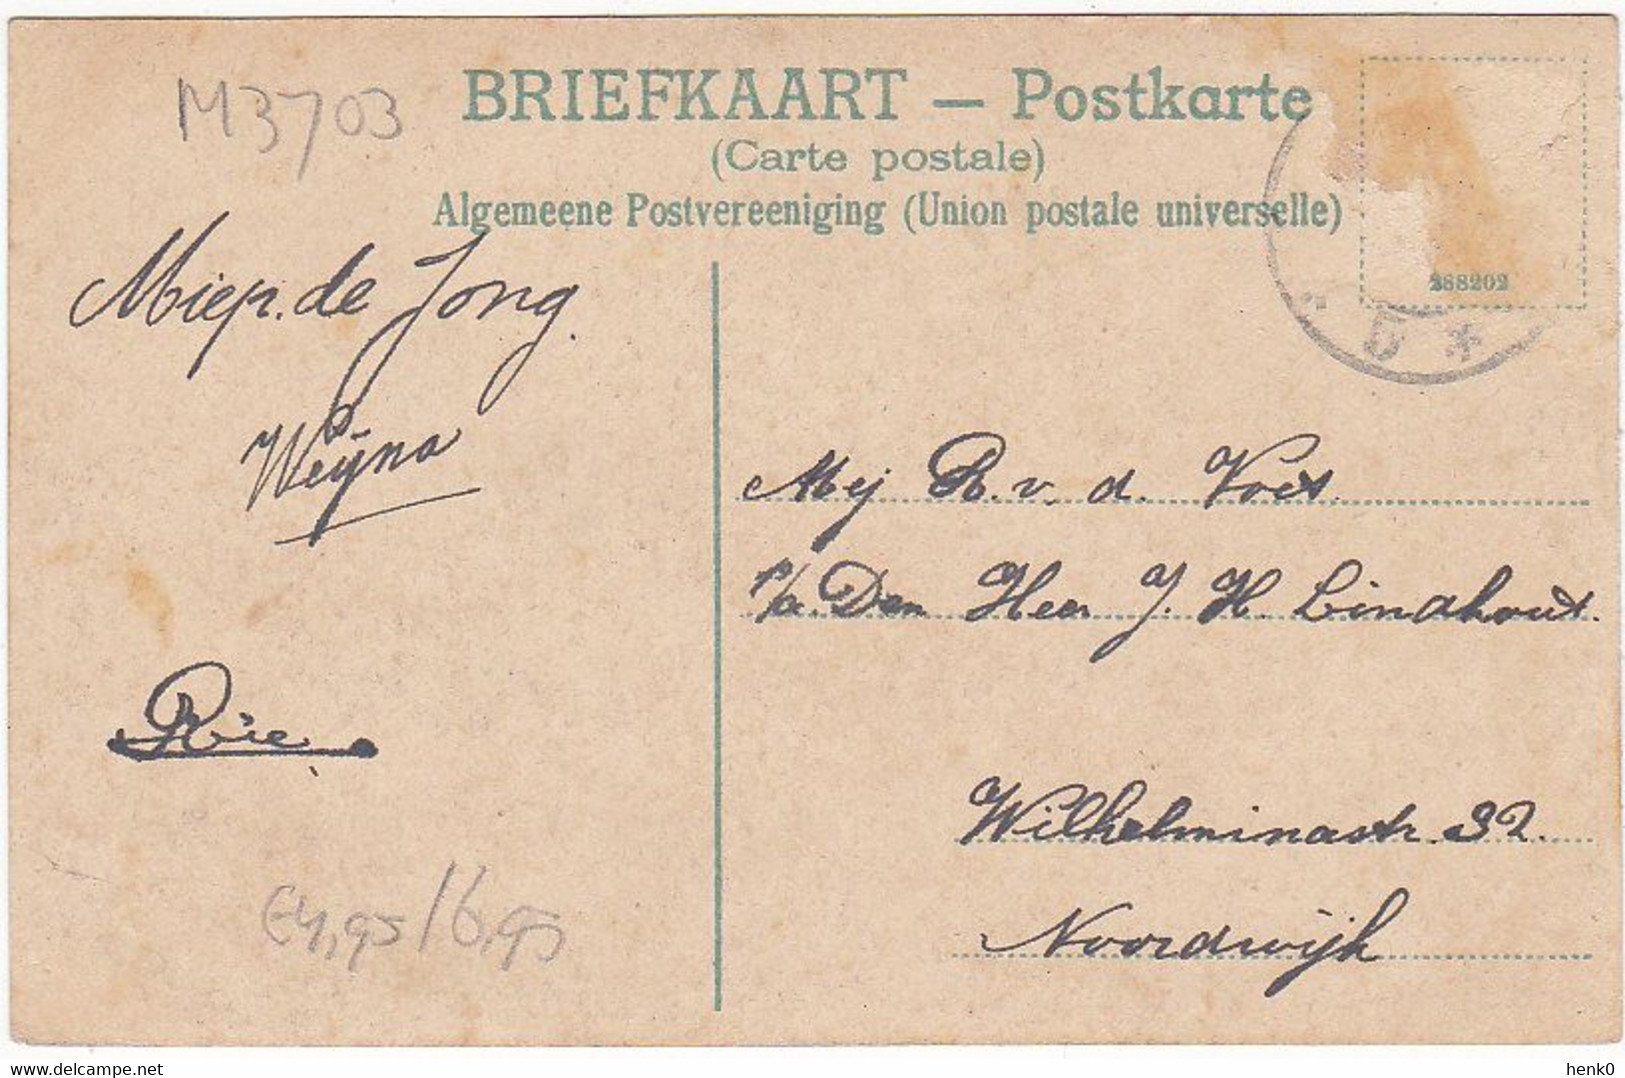 M3703
BRIEFKAART — Postkarte
(Carte postale)
Algemeene Postvereeniging (Union postale universelle)
268202
5 *
Miep. de Jong.
Weyna
Rie
€4,95/6,95
Mej R. v. d. Voet.
p/a. Den Heer J. H. Lindhout.
Wilhelminastr. 32.
Noordwijk
delcampe.net
henk0